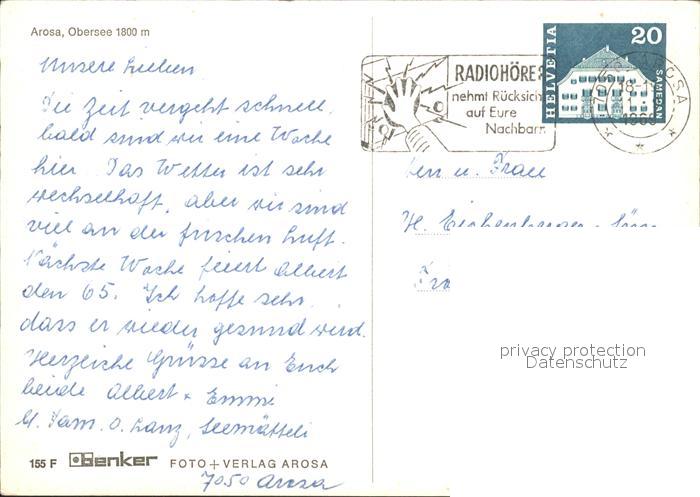 Arosa, Obersee 1800 m
Unsere Lieben
Die Zeit vergeht schnell,
bald sind wir eine Woche
hier. Das Wetter ist sehr
wechselhaft, aber wir sind
viel an der frischen Luft.
Nächste Woche feiert Albert
den 65. Ich hoffe sehr,
dass er wieder gesund wird.
Herzliche Grüsse an Euch
beide Albert + Emmi
b. Fam. O. Lanz, Seemätteli
7050 Arosa
155 F Benker FOTO + VERLAG AROSA
RADIOHÖRER
nehmt Rücksicht
auf Eure
Nachbarn
HELVETIA
20
SAMEDAN
7050 AROSA
18-1
Herrn u. Frau
H. Eichenberger
privacy protection
Datenschutz